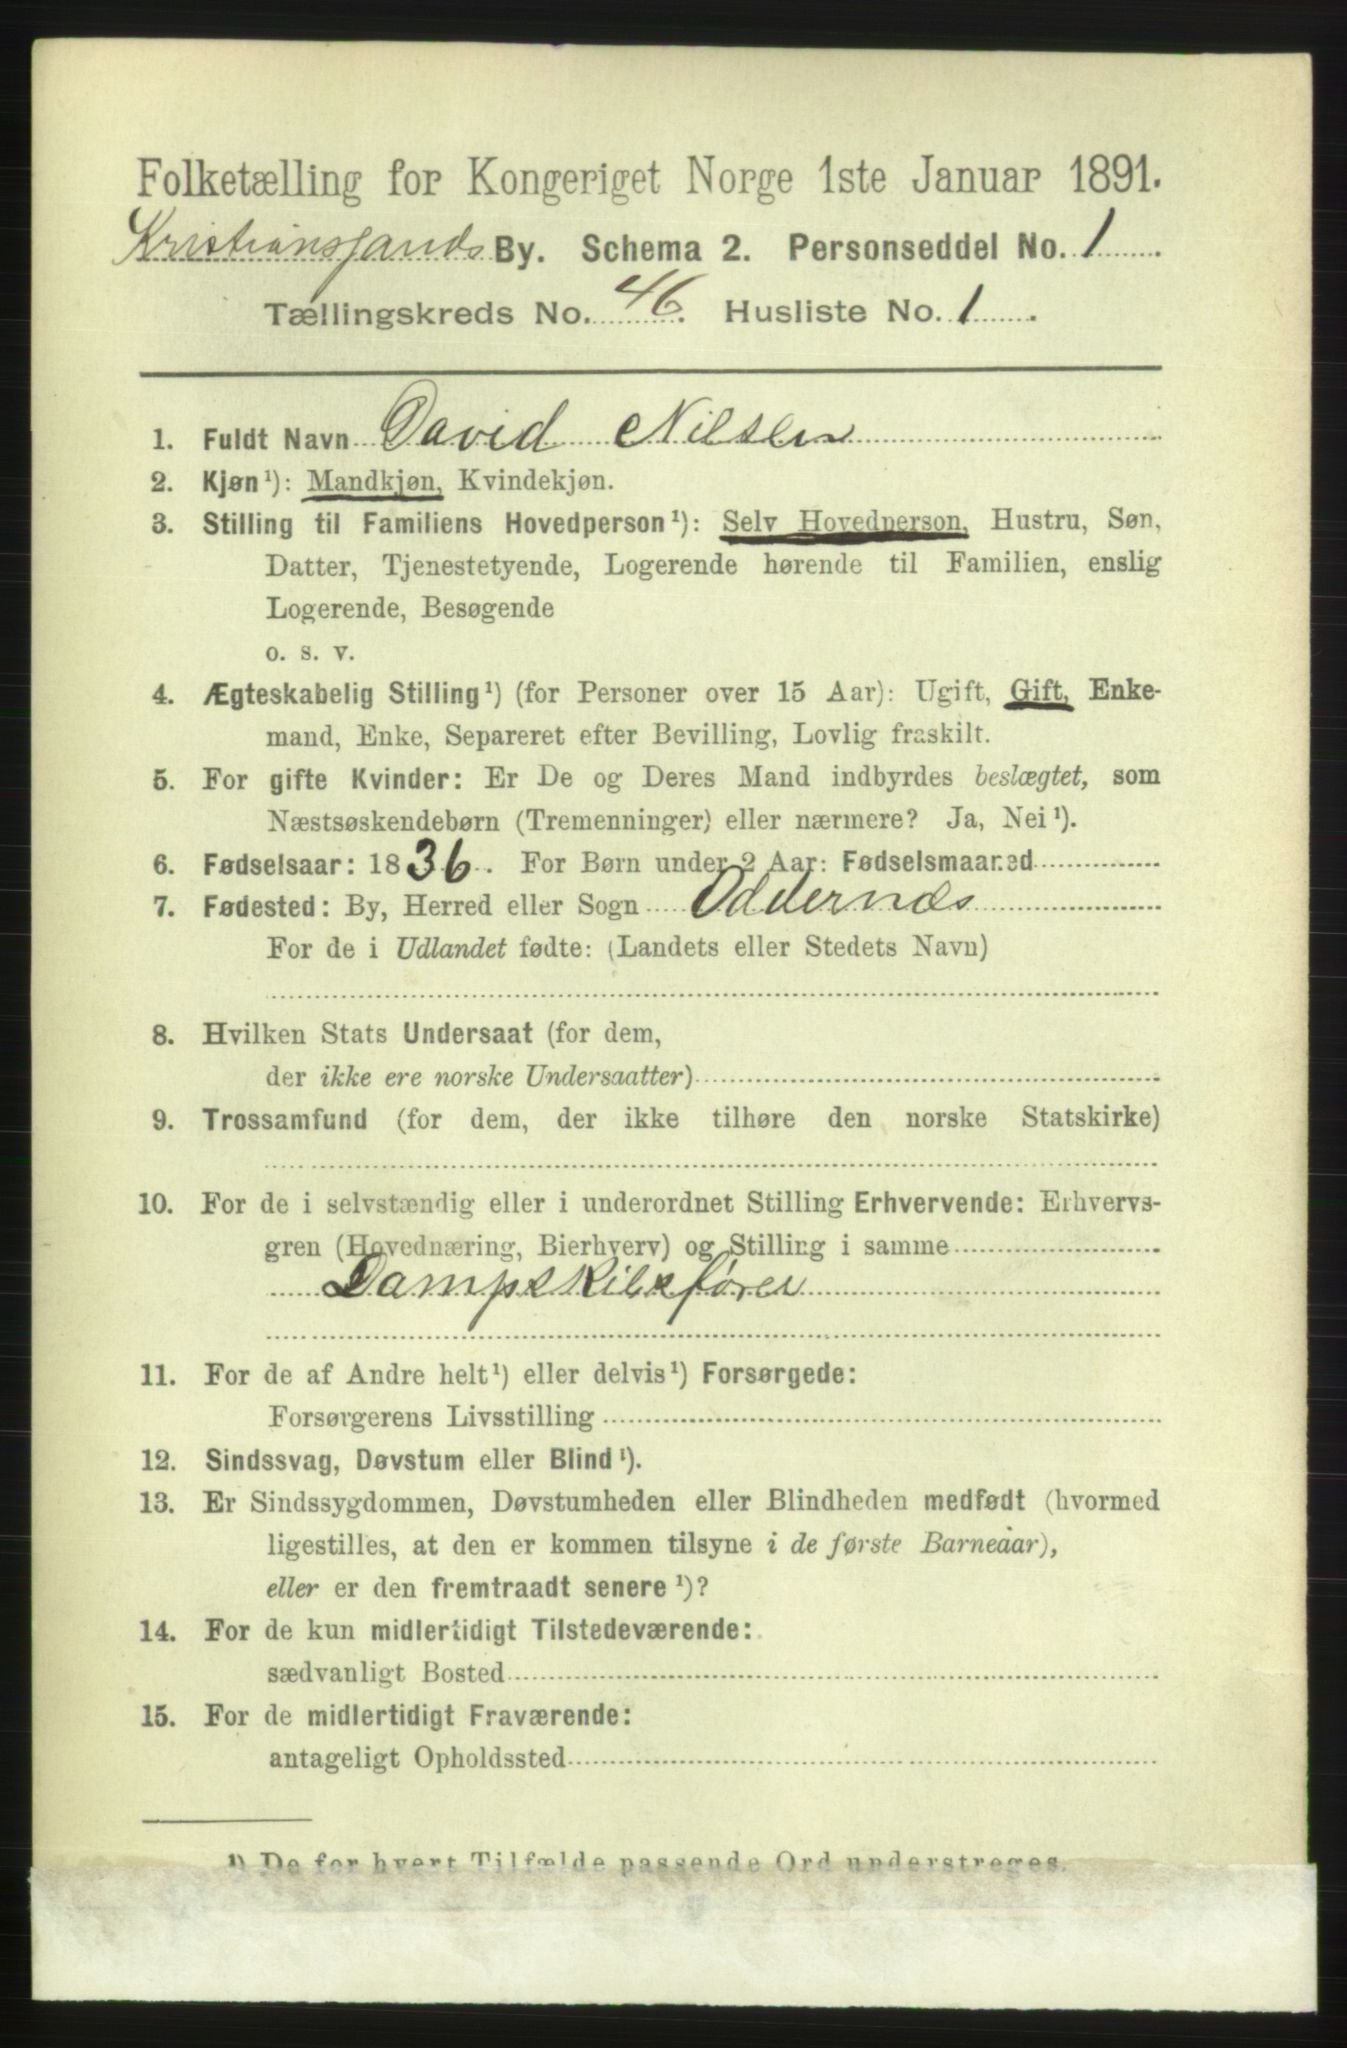 Folketælling for Kongeriget Norge 1ste Januar 1891.
Kristianssands By. Schema 2. Personseddel No. 1
Tællingskreds No. 46. Husliste No. 1.
1. Fuldt Navn David Nilsen
2. Kjøn¹): Mandkjøn, Kvindekjøn.
3. Stilling til Familiens Hovedperson¹): Selv Hovedperson, Hustru, Søn,
Datter, Tjenestetyende, Logerende hørende til Familien, enslig
Logerende, Besøgende
o. s. v.
4. Ægteskabelig Stilling¹) (for Personer over 15 Aar): Ugift, Gift, Enke-
mand, Enke, Separeret efter Bevilling, Lovlig fraskilt.
5. For gifte Kvinder: Er De og Deres Mand indbyrdes beslægtet, som
Næstsøskendebørn (Tremenninger) eller nærmere? Ja, Nei¹).
6. Fødselsaar: 1836. For Børn under 2 Aar: Fødselsmaaned
7. Fødested: By, Herred eller Sogn Oddernæs
For de i Udlandet fødte: (Landets eller Stedets Navn)
8. Hvilken Stats Undersaat (for dem,
der ikke ere norske Undersaatter)
9. Trossamfund (for dem, der ikke tilhøre den norske Statskirke)
10. For de i selvstændig eller i underordnet Stilling Erhvervende: Erhvervs-
gren (Hovednæring, Bierhverv) og Stilling i samme
Dampskibsfører
11. For de af Andre helt¹) eller delvis¹) Forsørgede:
Forsørgerens Livsstilling
12. Sindssvag, Døvstum eller Blind¹).
13. Er Sindssygdommen, Døvstumheden eller Blindheden medfødt (hvormed
ligestilles, at den er kommen tilsyne i de første Barneaar),
eller er den fremtraadt senere¹)?
14. For de kun midlertidigt Tilstedeværende:
sædvanligt Bosted
15. For de midlertidigt Fraværende:
antageligt Opholdssted
¹) De for hvert Tilfælde passende Ord understreges.